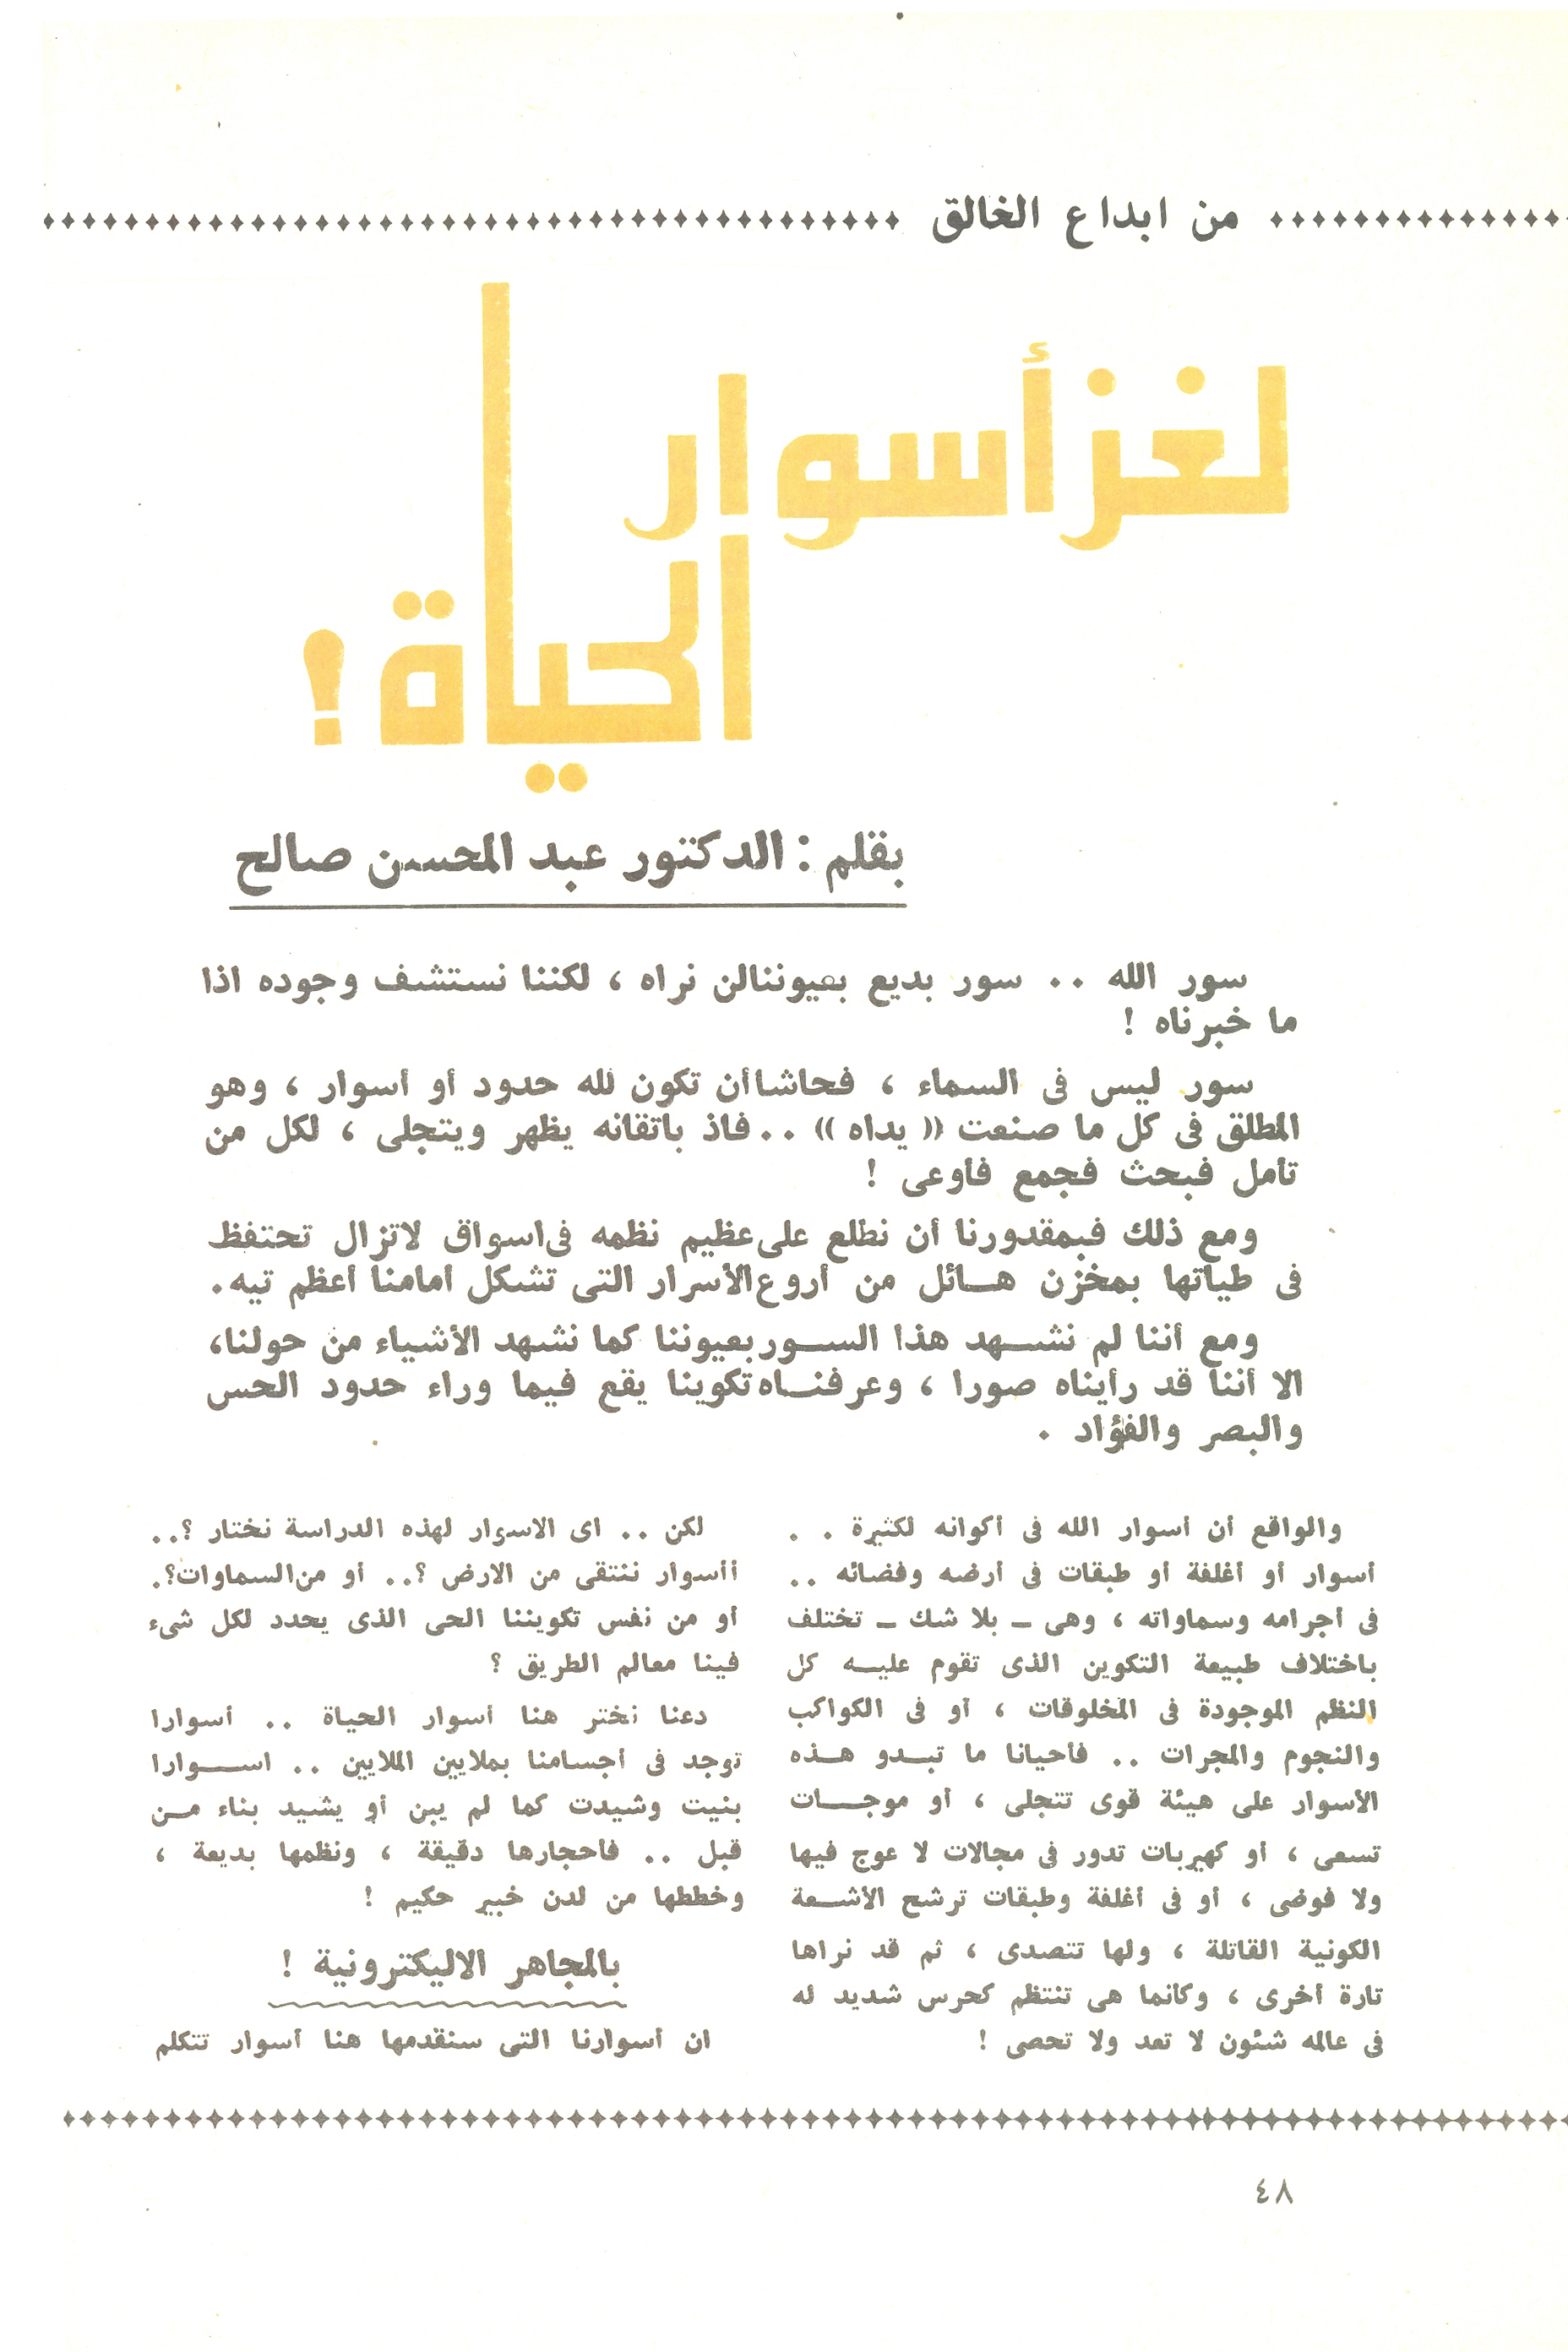 من ابداع الخالق
لغز أسوار
الحياة !
بقلم : الدكتور عبد المحسن صالح
سور الله ٠٠ سور بديع بعيوننالن نراه ، لكننا نستشف وجوده اذا
ما خبرناه !
سور ليس فى السماء ، فحاشاأن تكون لله حدود أو أسوار ، وهو
المطلق فى كل ما صنعت (( يداه )) ٠٠ فاذ باتقانه يظهر ويتجلى ، لكل من
تأمل فبحث فجمع فأوعى !
ومع ذلك فبمقدورنا أن نطلع على عظيم نظمه فى اسواق لاتزال تحتفظ
فى طياتها بمخزن هـائل من أروع الأسرار التى تشكل أمامنا أعظم تيه ٠
ومع أننا لم نشـهد هذا السـور بعيوننا كما نشهد الأشياء من حولنا،
الا أننا قد رأيناه صورا ، وعرفنـاه تكوينا يقع فيما وراء حدود الحس
والبصر والفؤاد ٠
والواقع أن أسوار الله فى أكوانه لكثيرة ٠ ٠
أسوار أو أغلفة أو طبقات فى أرضه وفضائه ٠٠
فى أجرامه وسماواته ، وهى – بلا شك – تختلف
باختلاف طبيعة التكوين الذى تقوم عليـه كل
النظم الموجودة فى المخلوقات ، أو فى الكواكب
والنجوم والمجرات ٠٠ فأحيانا ما تبـدو هـذه
الأسوار على هيئة قوى تتجلى ، أو موجـات
تسعى ، أو كهيربات تدور فى مجالات لا عوج فيها
ولا فوضى ، أو فى أغلفة وطبقات ترشح الأشـعة
الكونية القاتلة ، ولها تتصدى ، ثم قد نراها
تارة أخرى ، وكأنما هى تنتظم كحرس شديد له
فى عالمه شئون لا تعد ولا تحصى !
لكن ٠٠ اى الاسوار لهذه الدراسة نختار ؟٠٠
أأسوار ننتقى من الارض ؟٠٠ أو من السماوات؟٠
أو من نفس تكويننا الحى الذى يحدد لكل شىء
فينا معالم الطريق ؟
دعنا نختر هنا أسوار الحياة ٠٠ أسوارا
توجد فى أجسامنا بملايين الملايين ٠٠ اسـوارا
بنيت وشيدت كما لم يبن أو يشيد بناء مـن
قبل ٠٠ فأحجارها دقيقة ، ونظمها بديعة ،
وخططها من لدن خبير حكيم !
بالمجاهر الاليكترونية !
ان أسوارنا التى سنقدمها هنا أسوار تتكلم
٤٨